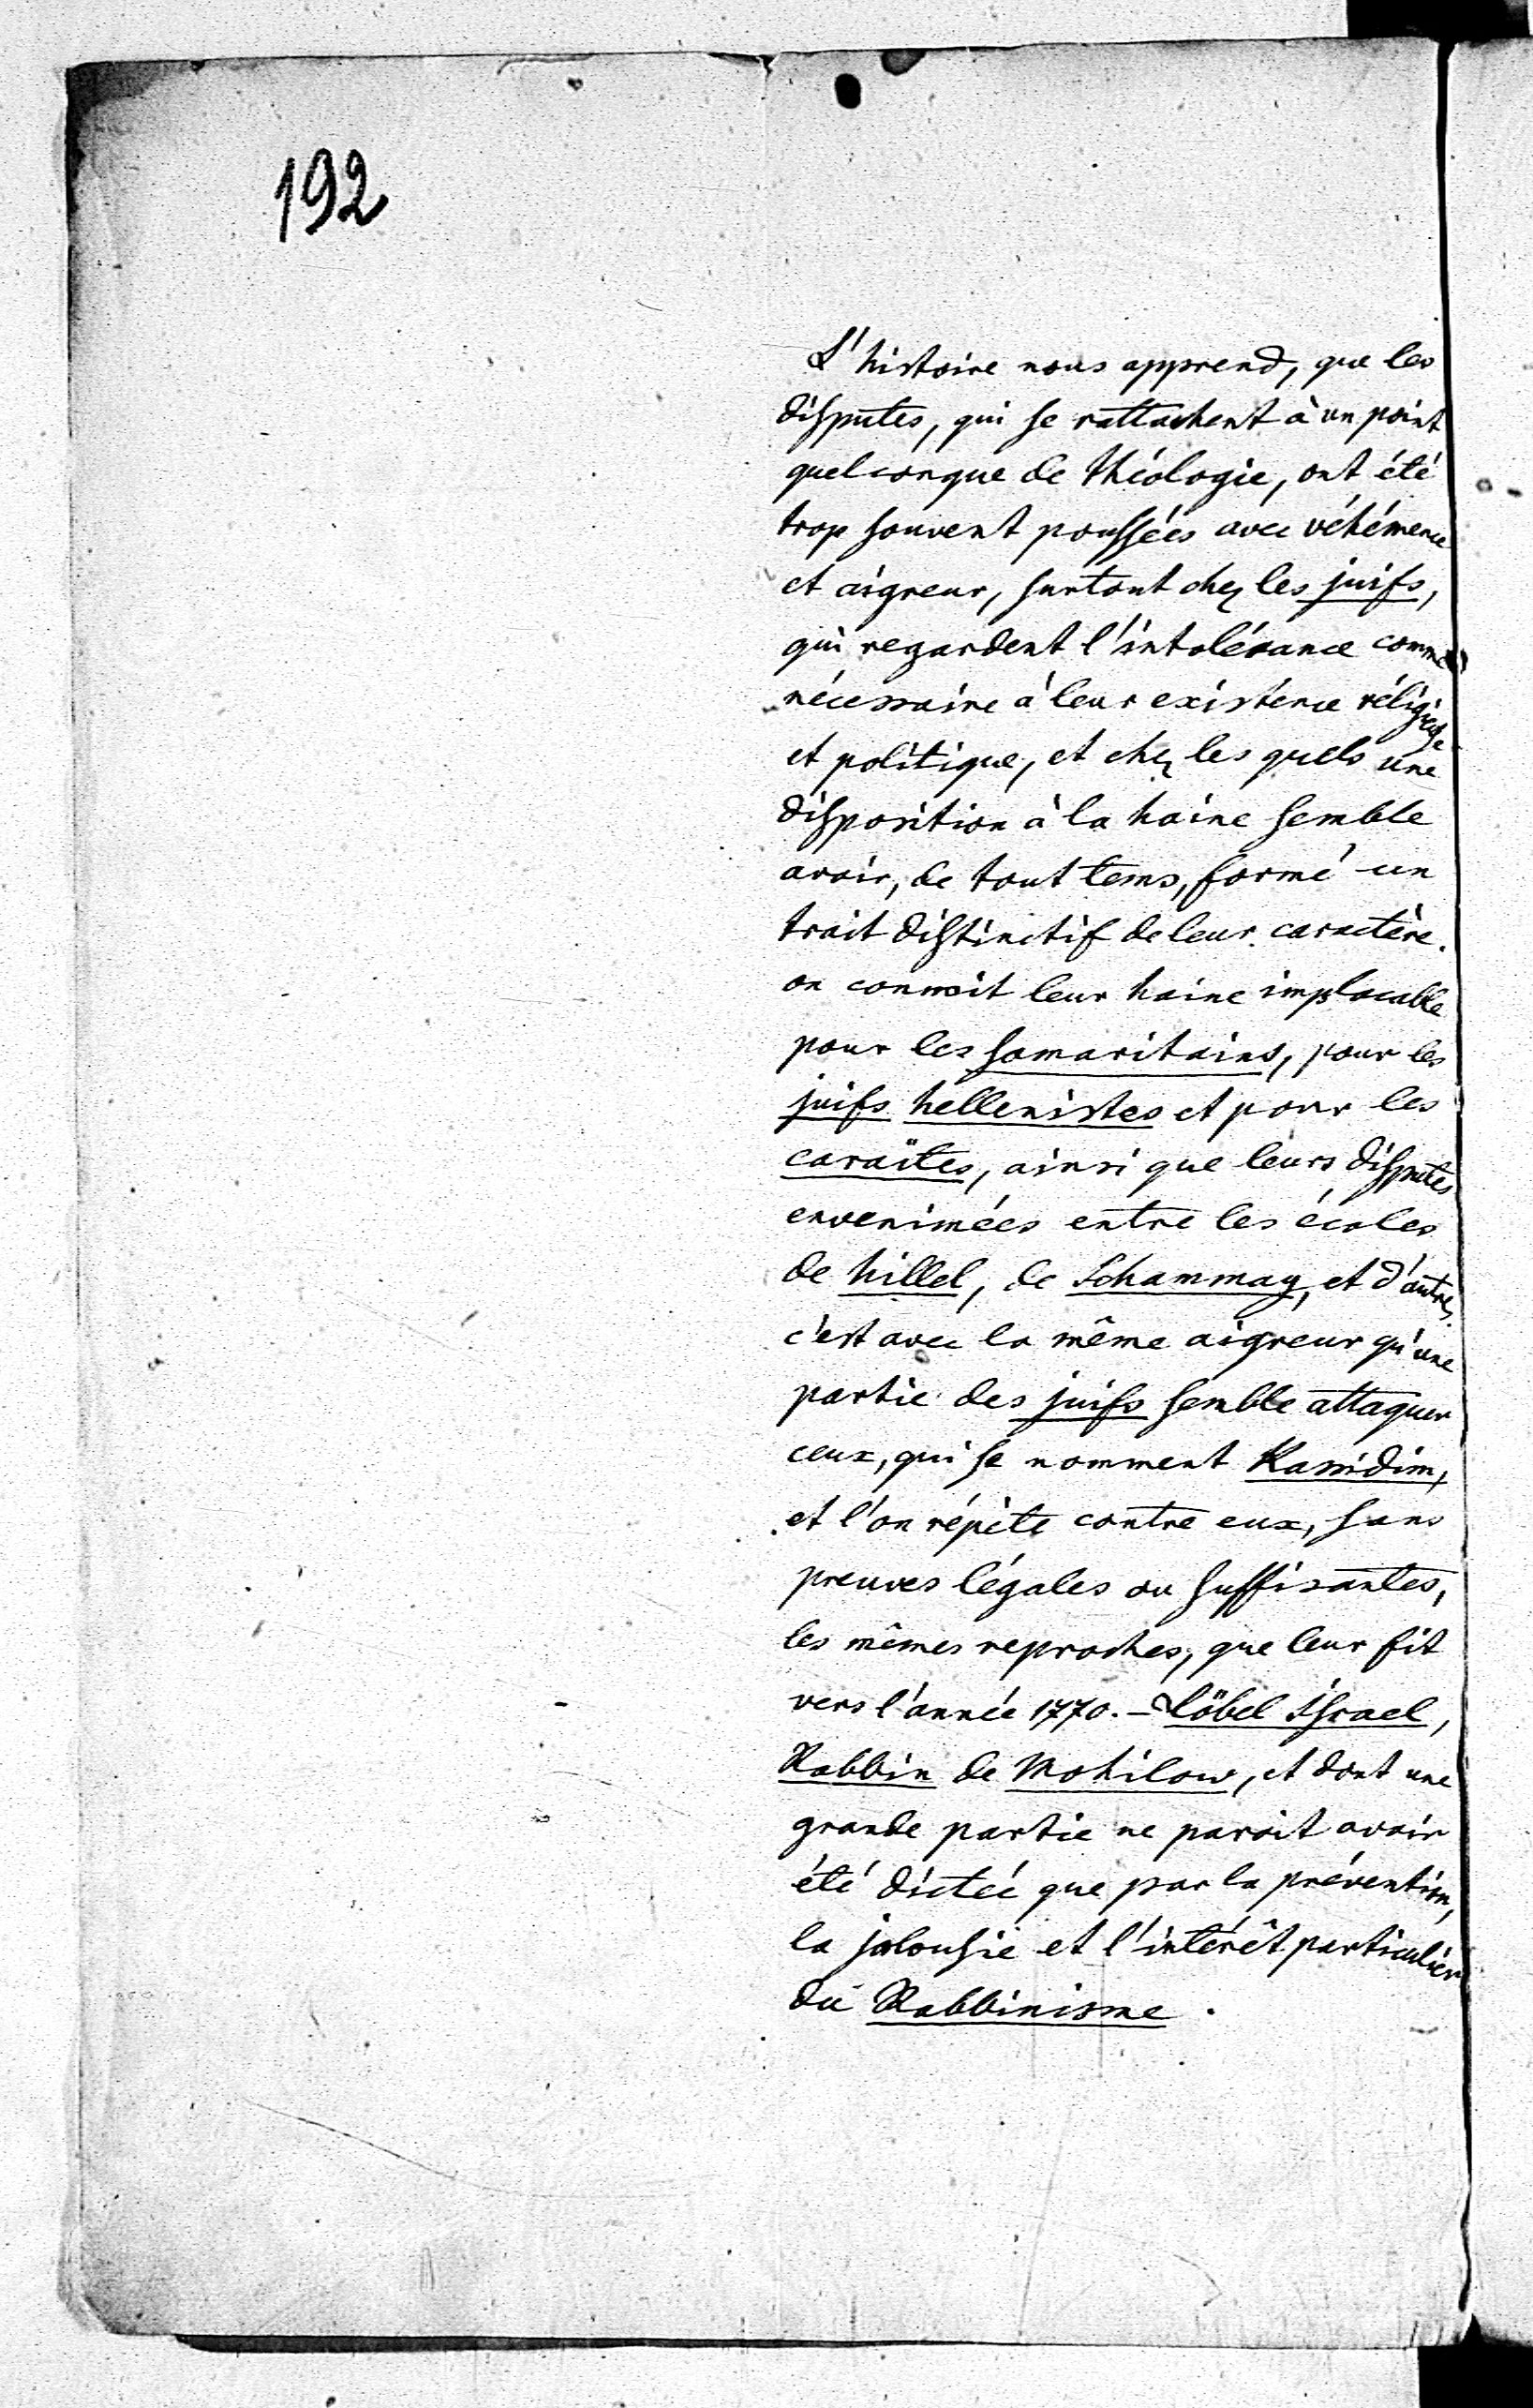 192
L'histoire nous apprend, que les
disputes, qui se rattachent à un point
quelconque de théologie, ont été
trop souvent poussées avec véhémence
et aigreur, surtout chez les juifs,
qui regardent l'intolérance comme
nécessaire à leur existence réligieuse
et politique, et chez les quels une
disposition à la haine semble
avoir, de tout tems, formé un
trait distinctif de leur caractère.
on connoit leur haine implacable
pour les samaritains, pour les
juifs hellenistes et pour les
caraïtes, ainsi que leurs disputes
envenimées entre les écoles
de hillel, de Schammay, et d'autres.
c'est avec la même aigreur qu'une
partie des juifs semble attaquer
ceux, qui se nomment Kassidim,
et l'on répète contre eux, sans
preuves légales ou suffisantes,
les mêmes reproches, que leur fit
vers l'année 1770. – Löbel Israel,
Rabbin de Mohilow, et dont une
grande partie ne paroit avoir
été dictée que par la prévention,
la jalousie et l'intérêt particulier
du Rabbinisme.